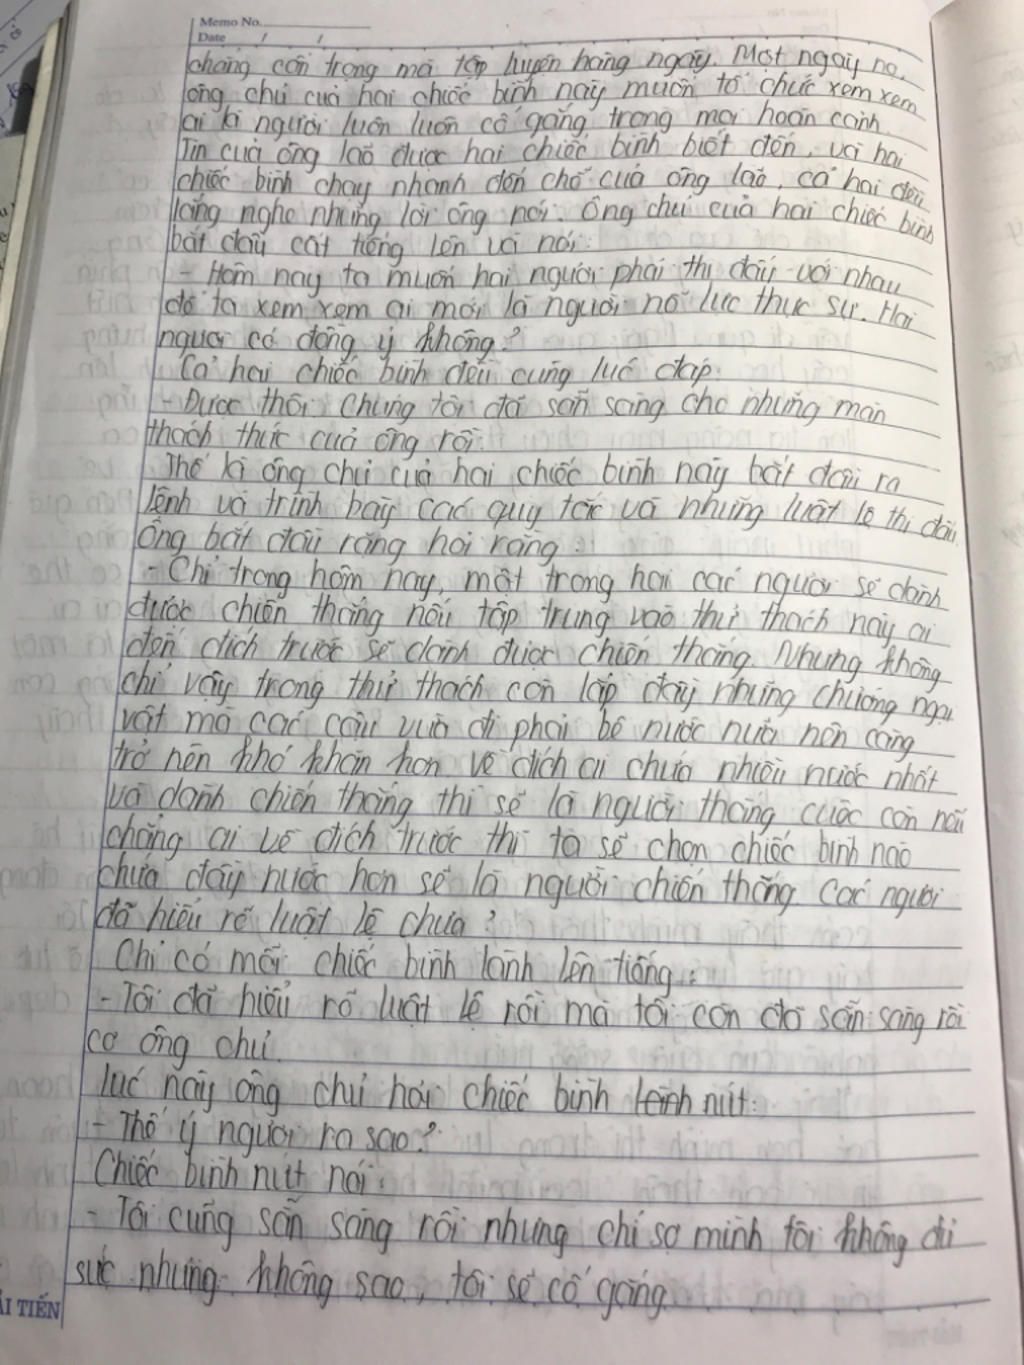 Memo No.
Date / /
chẳng cần trọng mà tập luyện hàng ngày. Một ngày nọ,
ông chủ của hai chiếc bình này muốn tổ chức xem xem
ai kì người luôn luôn cố gắng trong mọi hoàn cảnh.
Tin của ông lão được hai chiếc bình biết đến, và hai
chiếc bình chạy nhanh đến chỗ của ông lão, cả hai đều
lắng nghe những lời ông nói. Ông chủ của hai chiếc bình
bắt đầu cất tiếng lên và nói:
- Hôm nay ta muốn hai người phải thi đấy với nhau
để ta xem xem ai mới là người nỗ lực thực sự. Hai
người có đồng ý không?
Cả hai chiếc bình đều cùng lúc đáp:
- Được thôi. Chúng tôi đã sẵn sàng cho những màn
thách thức của ông rồi.
Thế kì ông chủ của hai chiếc bình này bắt đầu ra
lệnh và trình bày các quy tắc và những luật lệ thi đấu
Ông bắt đầu rằng hỏi rằng:
- Chỉ trong hôm nay, một trong hai các người sẽ dành
được chiến thắng nếu tập trung vào thử thách này ai
đến đích trước sẽ dành được chiến thắng. Nhưng không
chỉ vậy trong thử thách còn lấp đầy những chướng ngại
vật mà các cậu vừa đi phải bê nước nữa nên càng
trở nên khó khăn hơn về đích ai chứa nhiều nước nhất
và dành chiến thắng thì sẽ là người thắng cuộc còn nếu
chẳng ai về đích trước thì ta sẽ chọn chiếc bình nào
chứa đầy nước hơn sẽ là người chiến thắng các người
đã hiểu rõ luật lệ chưa?
Chỉ có mỗi chiếc bình lành lên tiếng:
- Tôi đã hiểu rõ luật lệ rồi mà tôi còn đã sẵn sàng rồi
cơ ông chủ.
lúc này ông chủ hỏi chiếc bình nứt:
- Thế ý người ra sao?
Chiếc bình nứt nói:
- Tôi cũng sẵn sàng rồi nhưng chỉ sợ mình tôi không đủ
sức nhưng không sao, tôi sẽ cố gắng.
ẢI TIẾN